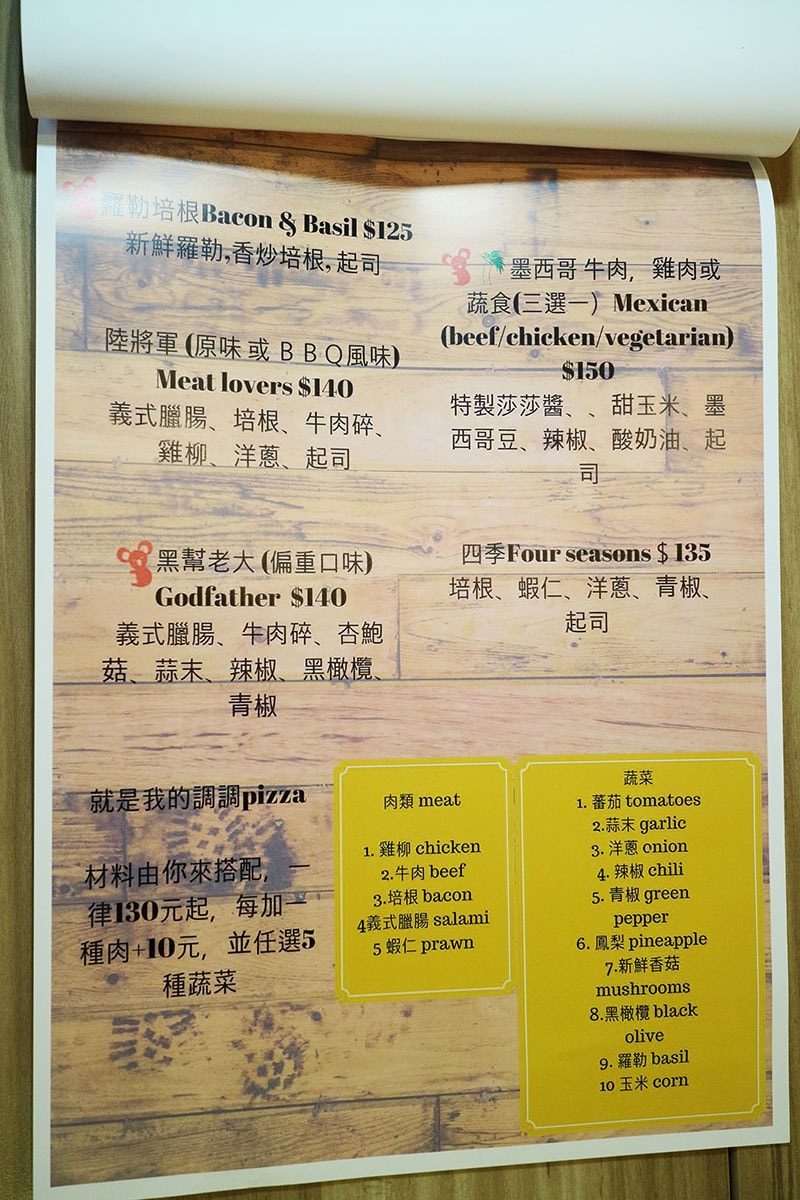 羅勒培根Bacon & Basil $125
新鮮羅勒,香炒培根, 起司
陸將軍 (原味 或 ＢＢＱ風味)
Meat lovers $140
義式臘腸、培根、牛肉碎、
雞柳、洋蔥、起司
黑幫老大 (偏重口味)
Godfather $140
義式臘腸、牛肉碎、杏鮑
菇、蒜末、辣椒、黑橄欖、
青椒
墨西哥 牛肉，雞肉或
蔬食(三選一）Mexican
(beef/chicken/vegetarian)
$150
特製莎莎醬、、甜玉米、墨
西哥豆、辣椒、酸奶油、起
司
四季Four seasons＄135
培根、蝦仁、洋蔥、青椒、
起司
就是我的調調pizza
材料由你來搭配，一
律130元起，每加一
種肉+10元，並任選5
種蔬菜
肉類 meat
1. 雞柳 chicken
2.牛肉 beef
3.培根 bacon
4義式臘腸 salami
5 蝦仁 prawn
蔬菜
1. 蕃茄 tomatoes
2.蒜末 garlic
3. 洋蔥 onion
4. 辣椒 chili
5. 青椒 green
pepper
6. 鳳梨 pineapple
7.新鮮香菇
mushrooms
8.黑橄欖 black
olive
9. 羅勒 basil
10 玉米 corn